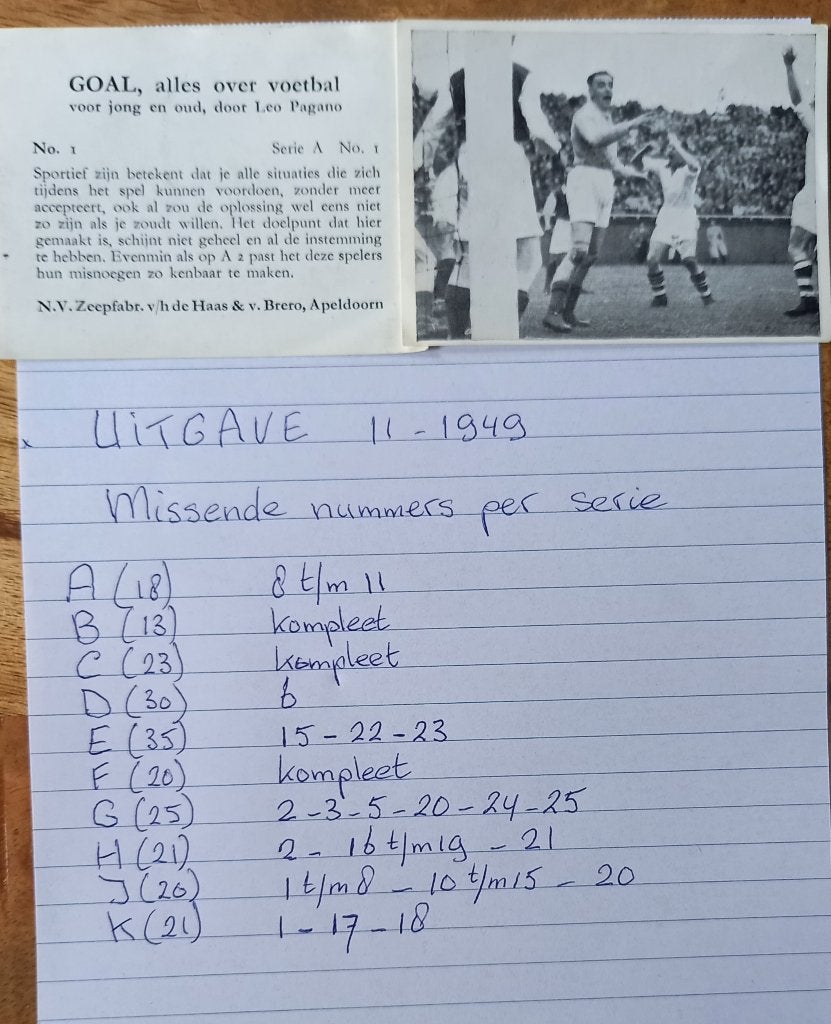 GOAL, alles over voetbal
voor jong en oud, door Leo Pagano
No. 1 Serie A No. 1
Sportief zijn betekent dat je alle situaties die zich
tijdens het spel kunnen voordoen, zonder meer
accepteert, ook al zou de oplossing wel eens niet
zo zijn als je zoudt willen. Het doelpunt dat hier
gemaakt is, schijnt niet geheel en al de instemming
te hebben. Evenmin als op A 2 past het deze spelers
hun misnoegen zo kenbaar te maken.
N.V. Zeepfabr. v/h de Haas & v. Brero, Apeldoorn
UITGAVE 11-1949
Missende nummers per serie
A (18) 8 t/m 11
B (13) kompleet
C (23) kompleet
D (30) 6
E (35) 15 - 22 - 23
F (20) kompleet
G (25) 2 - 3 - 5 - 20 - 24 - 25
H (21) 2 - 16 t/m 19 - 21
J (20) 1 t/m 8 - 10 t/m 15 - 20
K (21) 1 - 17 - 18